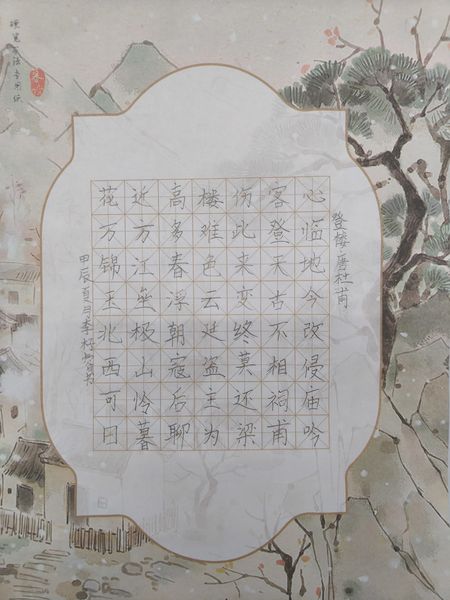 硬笔书法专用纸
登楼 唐杜甫
花近高楼伤客心
万方多难此登临
锦江春色来天地
玉垒浮云变古今
北极朝廷终不改
西山寇盗莫相侵
可怜后主还祠庙
日暮聊为梁甫吟
甲辰夏月李书